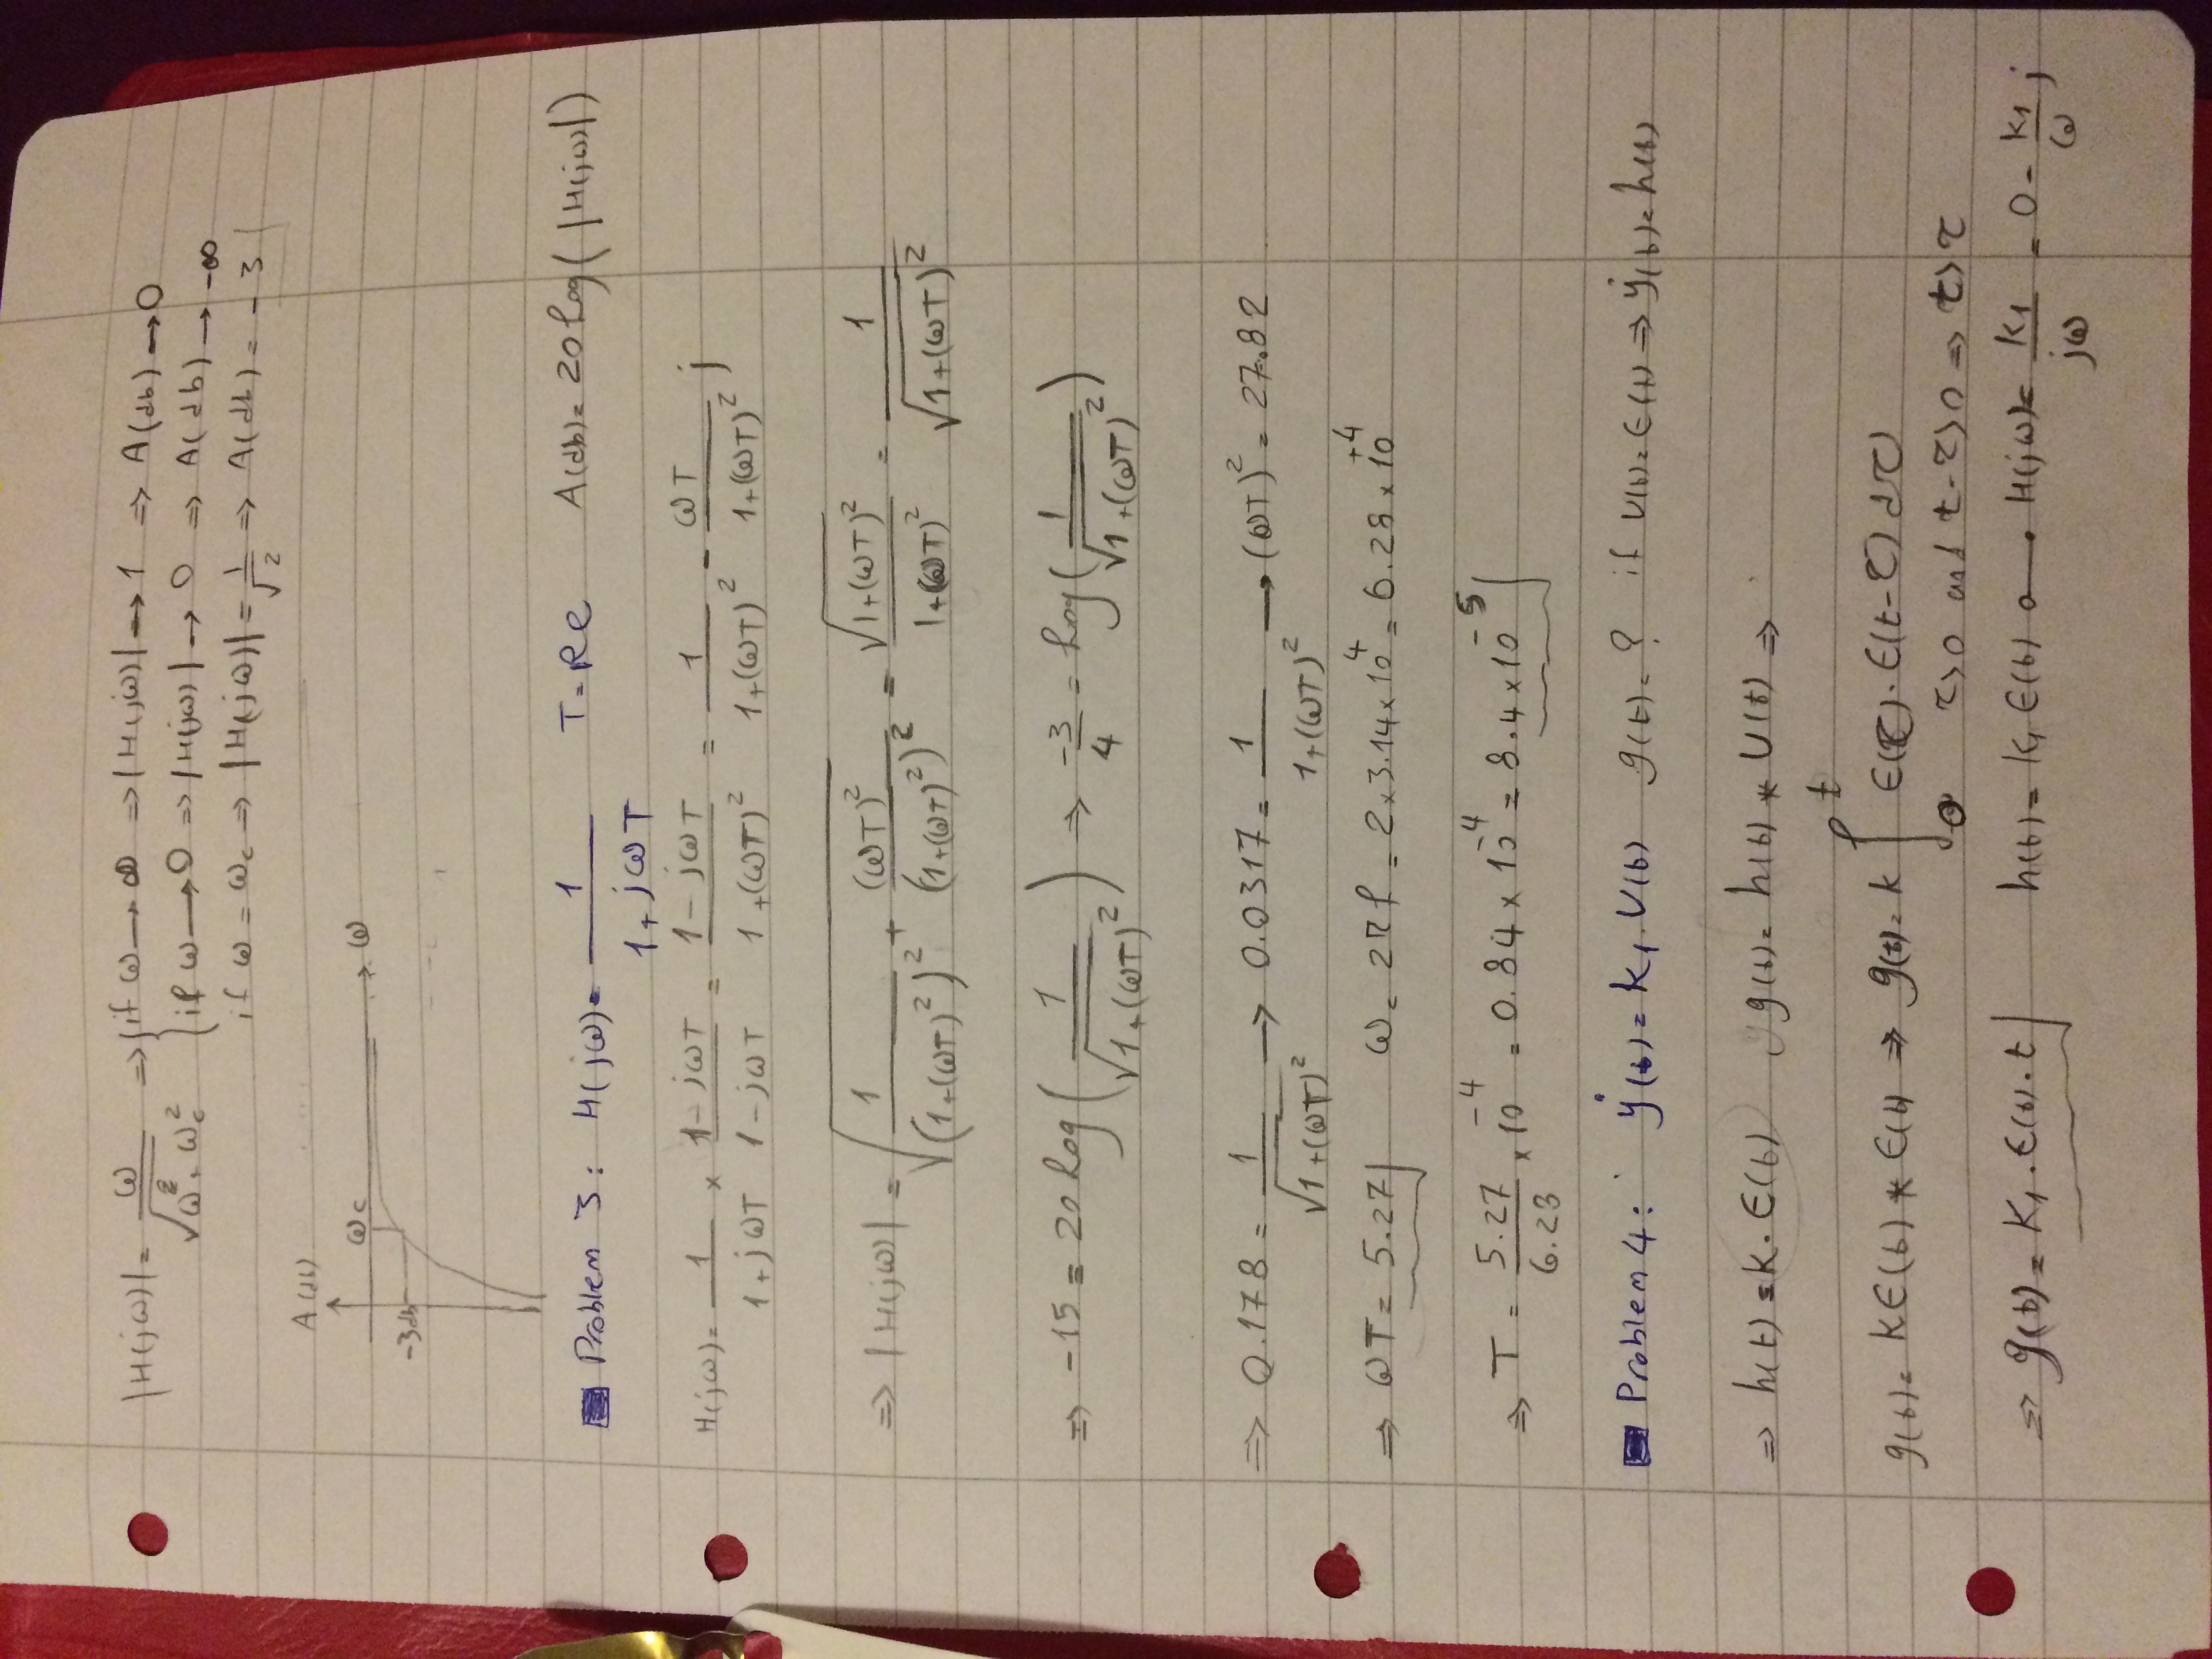 |H(jω)| = ω / √(ω² + ω_c²) ⇒ { if ω → ∞ ⇒ |H(jω)| → 1 ⇒ A(db) → 0
if ω → 0 ⇒ |H(jω)| → 0 ⇒ A(db) → -∞
if ω = ω_c ⇒ |H(jω)| = 1/√2 ⇒ A(db) = -3
A(db)
ω_c ω
-3db
Problem 3: H(jω) = 1 / (1 + jωT) T = RC A(db) = 20 Log( |H(jω)| )
H(jω) = 1/(1 + jωT) × (1 - jωT)/(1 - jωT) = (1 - jωT)/(1 + (ωT)²) = 1/(1 + (ωT)²) - ωT/(1 + (ωT)²) j
⇒ |H(jω)| = √( 1/(1 + (ωT)²)² + (ωT)²/(1 + (ωT)²)² ) = √(1 + (ωT)²)/(1 + (ωT)²) = 1/√(1 + (ωT)²)
⇒ -15 = 20 Log( 1/√(1 + (ωT)²) ) ⇒ -3/4 = Log( 1/√(1 + (ωT)²) )
⇒ 0.178 = 1/√(1 + (ωT)²) → 0.0317 = 1/(1 + (ωT)²) → (ωT)² = 27.82
⇒ ωT = 5.27 ω = 2πf = 2 × 3.14 × 10⁴ = 6.28 × 10⁺⁴
⇒ T = 5.27/6.28 × 10⁻⁴ = 0.84 × 10⁻⁴ = 8.4 × 10⁻⁵
Problem 4: ẏ(t) = K₁.U(t) g(t) = ? if U(t) = ϵ(t) ⇒ ẏ(t) = h(t)
⇒ h(t) = K.ϵ(t) g(t) = h(t) * U(t) ⇒
g(t) = Kϵ(t) * ϵ(t) ⇒ g(t) = K ∫₀ᵗ ϵ(τ).ϵ(t-τ) dτ
τ>0 and t-τ>0 ⇒ t>τ
⇒ g(t) = K₁.ϵ(t).t h(t) = K₁ ϵ(t) o—• H(jω) = K₁/jω = 0 - K₁/ω j